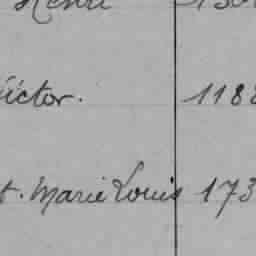 Henri
Victor. 118
t. Marie Louis 173